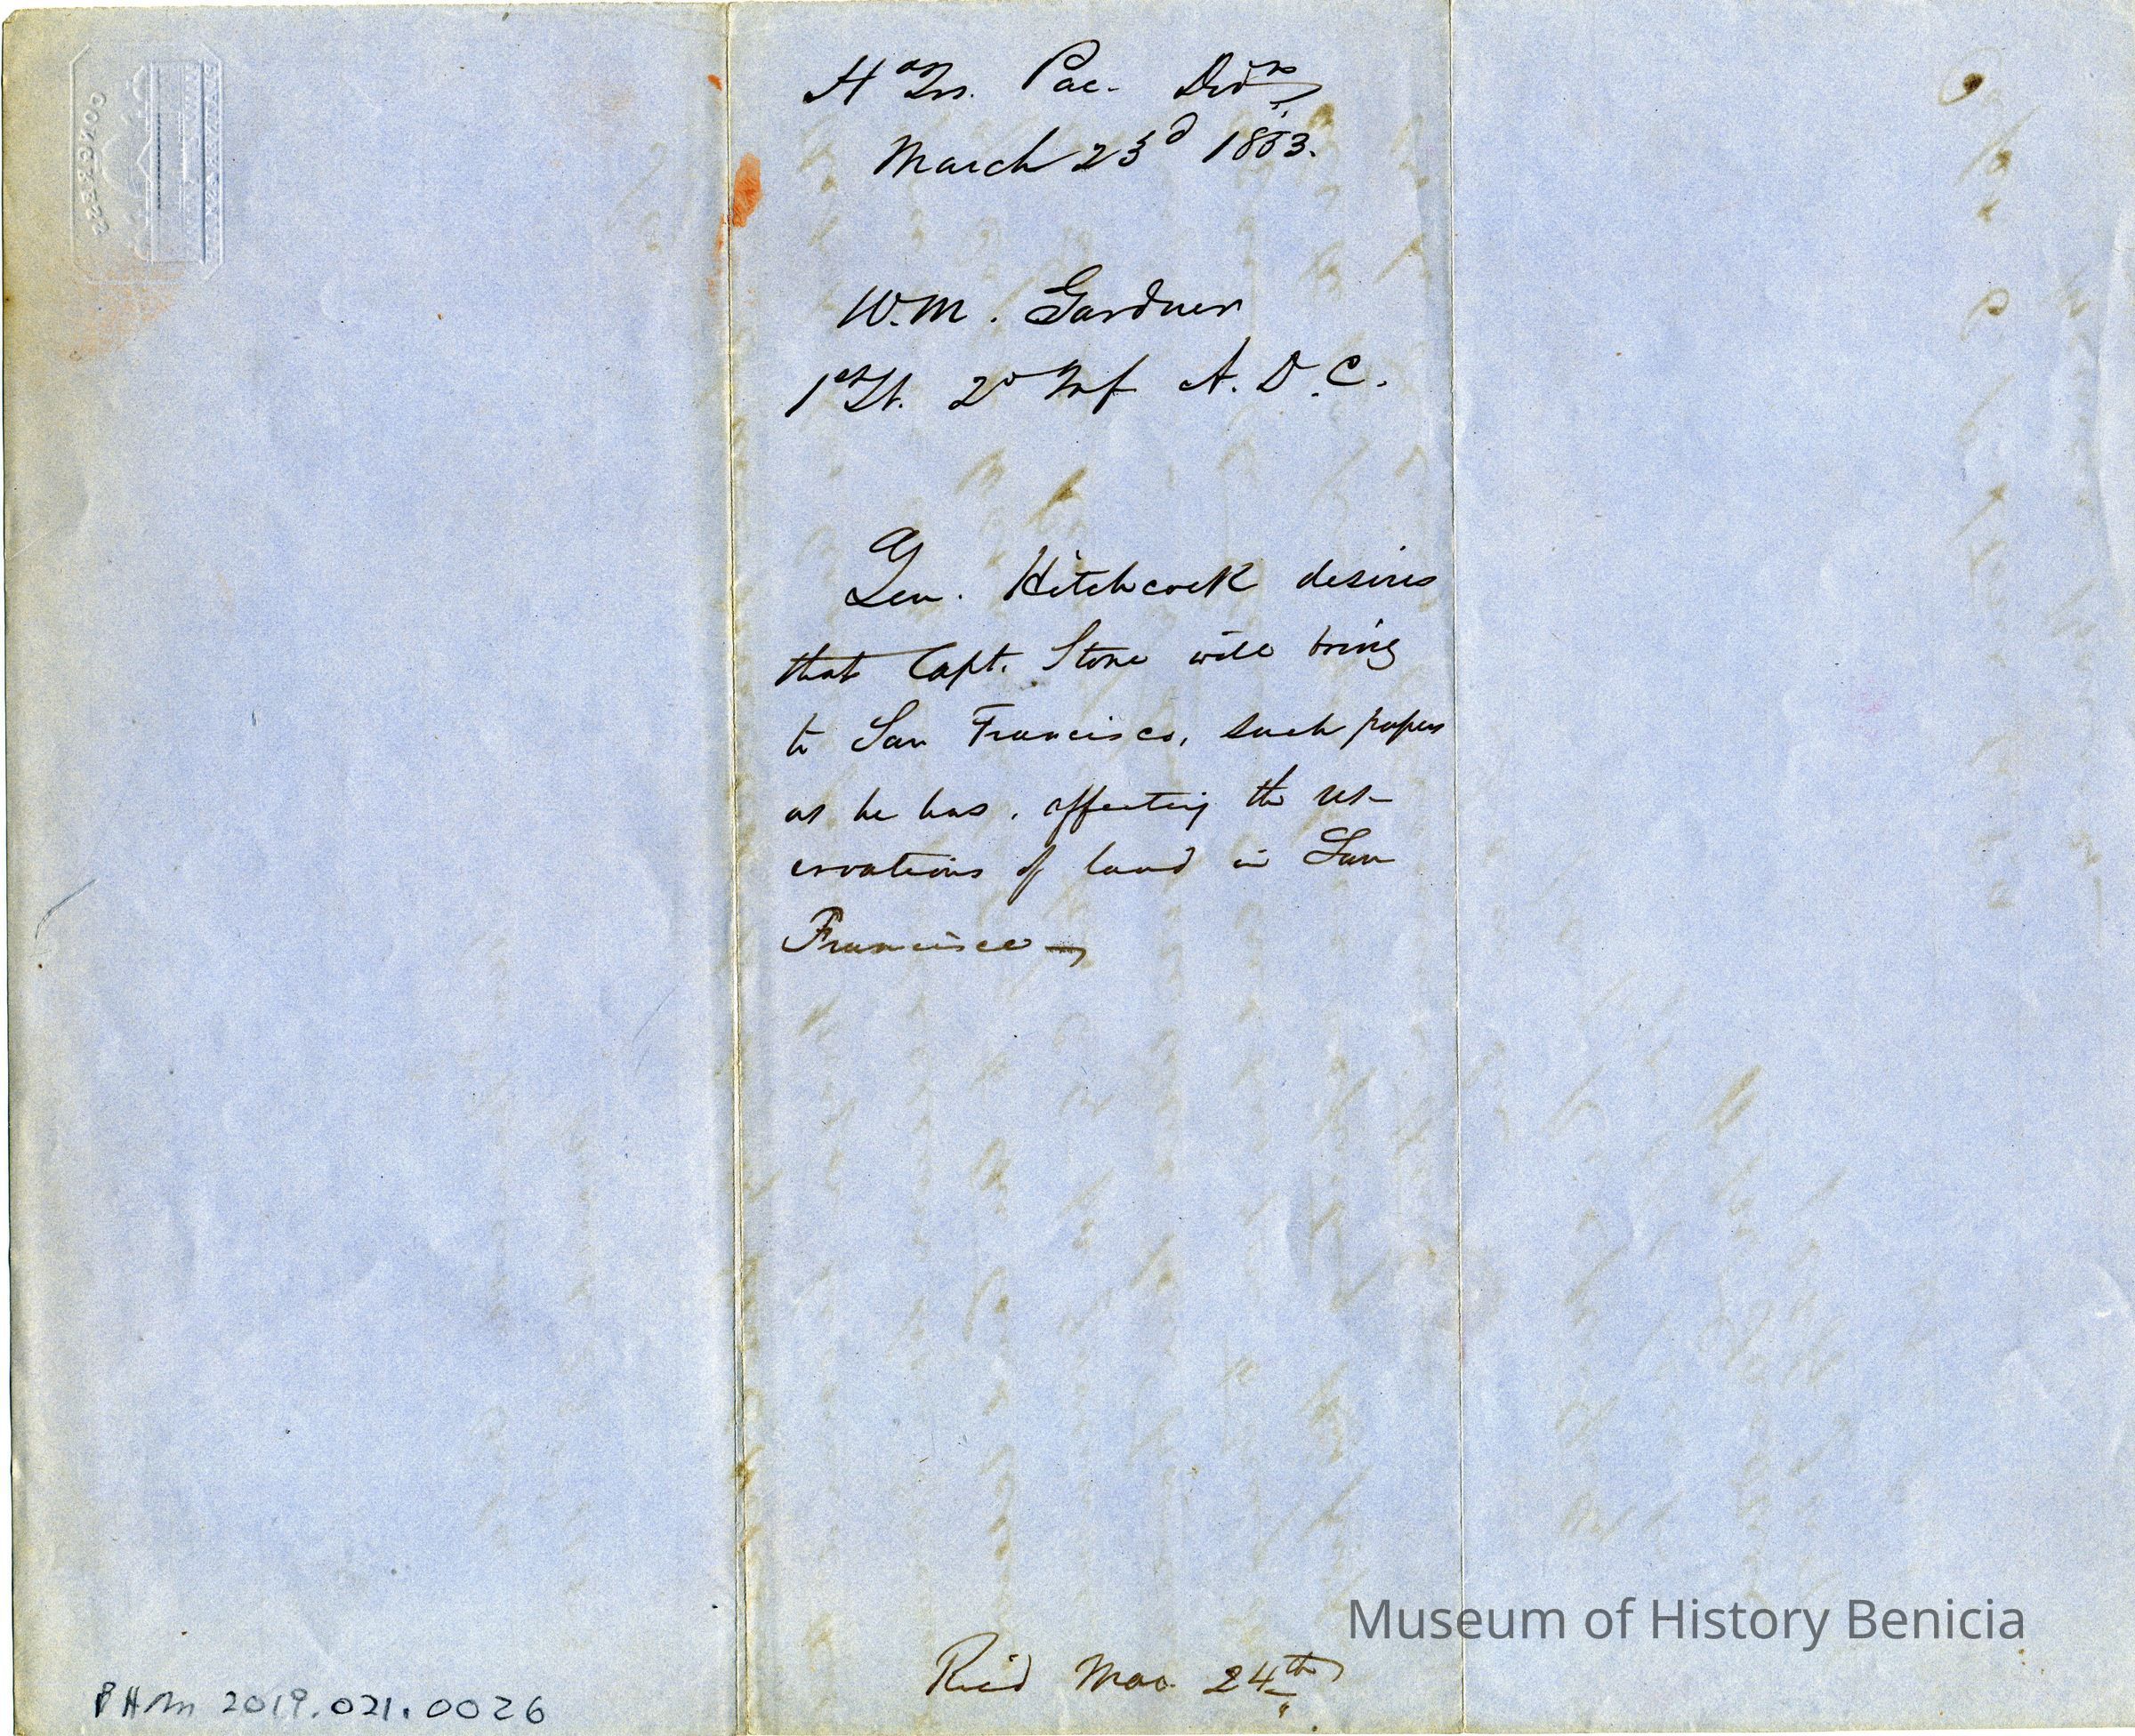 Hd Qrs. Pac. Divn
March 23d 1853.
W. M. Gardner
1st Lt. 2d Inf A. D. C.
Gen. Hitchcock desires
that Capt. Stone will bring
to San Francisco, such papers
as he has, affecting the res-
ervations of land in San
Francisco—
Rec'd Mar. 24th
Museum of History Benicia
BHM 2019.021.0026
CONGRESS